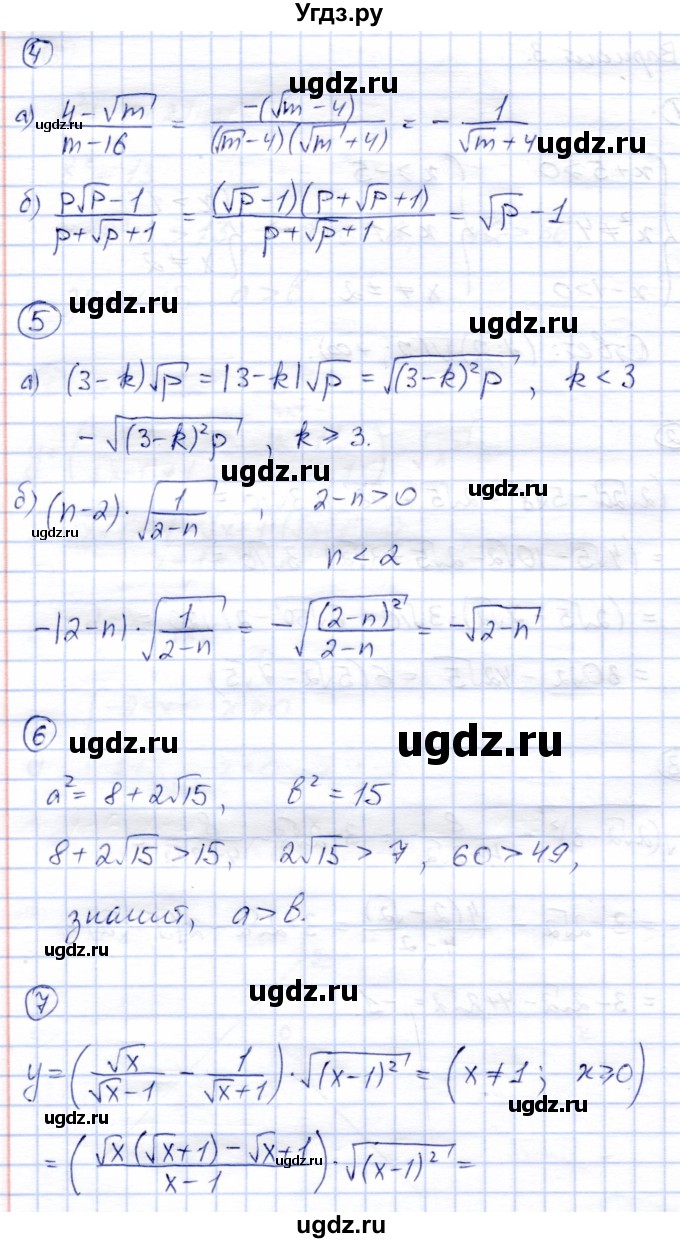 Угдз.ру
④
ugdz.ru
а) (4-√m)/(m-16) = (-(√m-4))/((√m-4)(√m+4)) = - 1/(√m+4)
ugdz.ru
ugdz.ru
б) (p√p-1)/(p+√p+1) = ((√p-1)(p+√p+1))/(p+√p+1) = √p-1
⑤
ugdz.ru
ugdz.ru
а) (3-k)√p = |3-k|√p = √((3-k)²p), k<3
-√((3-k)²p), k⩾3.
ugdz.ru
ugdz.ru
б) (n-2)·√(1/(2-n)), 2-n>0
ugdz.ru
n<2
-|2-n|·√(1/(2-n)) = -√((2-n)²/(2-n)) = -√(2-n)
⑥
ugdz.ru
ugdz.ru
a²= 8+2√15, b²=15
8+2√15>15, 2√15>7, 60>49,
значит, a>b.
ugdz.ru
⑦
ugdz.ru
y=(√x/(√x-1) - 1/(√x+1))·√((x-1)²) = (x≠1; x⩾0)
ugdz.ru
ugdz.ru
=((√x(√x+1)-√x+1)/(x-1))·√((x-1)²)=
ugdz.ru
ugdz.ru